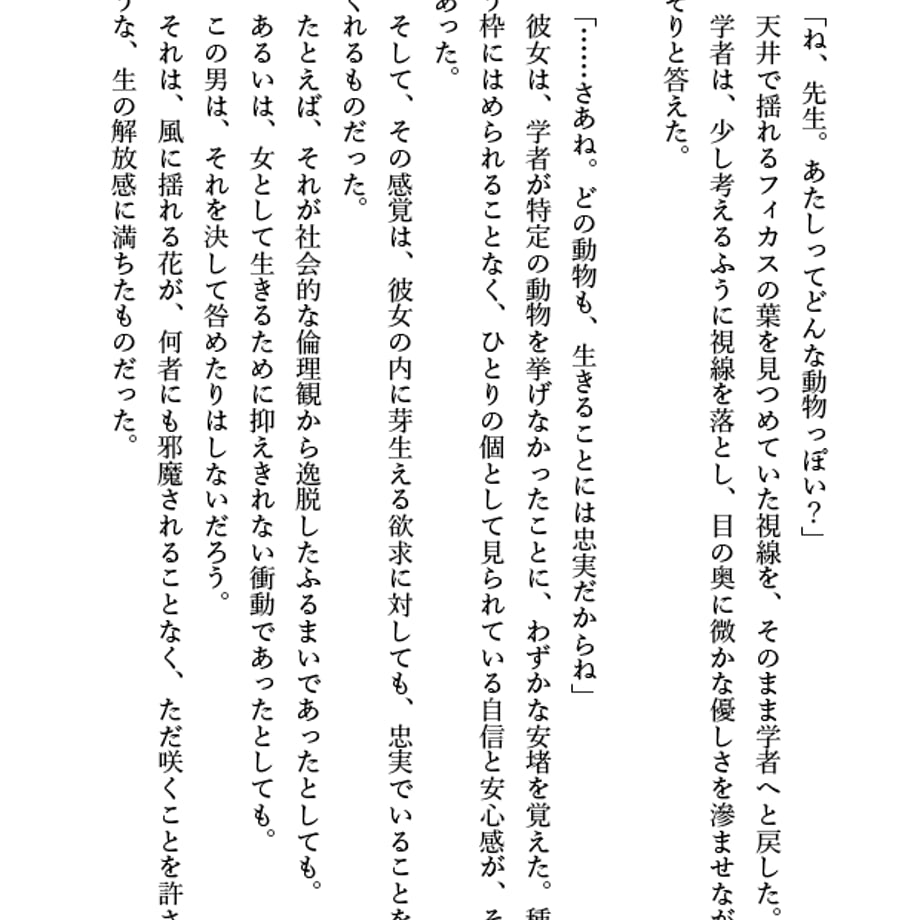 「ね、先生。あたしってどんな動物っぽい？」
天井で揺れるフィカスの葉を見つめていた視線を、そのまま学者へと戻した。
学者は、少し考えるふうに視線を落とし、目の奥に微かな優しさを滲ませなが
そりと答えた。
「……さあね。どの動物も、生きることには忠実だからね」
彼女は、学者が特定の動物を挙げなかったことに、わずかな安堵を覚えた。種
う枠にはめられることなく、ひとりの個として見られている自信と安心感が、そ
あった。
そして、その感覚は、彼女の内に芽生える欲求に対しても、忠実でいることを
くれるものだった。
たとえば、それが社会的な倫理観から逸脱したふるまいであったとしても。
あるいは、女として生きるために抑えきれない衝動であったとしても。
この男は、それを決して咎めたりはしないだろう。
それは、風に揺れる花が、何者にも邪魔されることなく、ただ咲くことを許さ
うな、生の解放感に満ちたものだった。